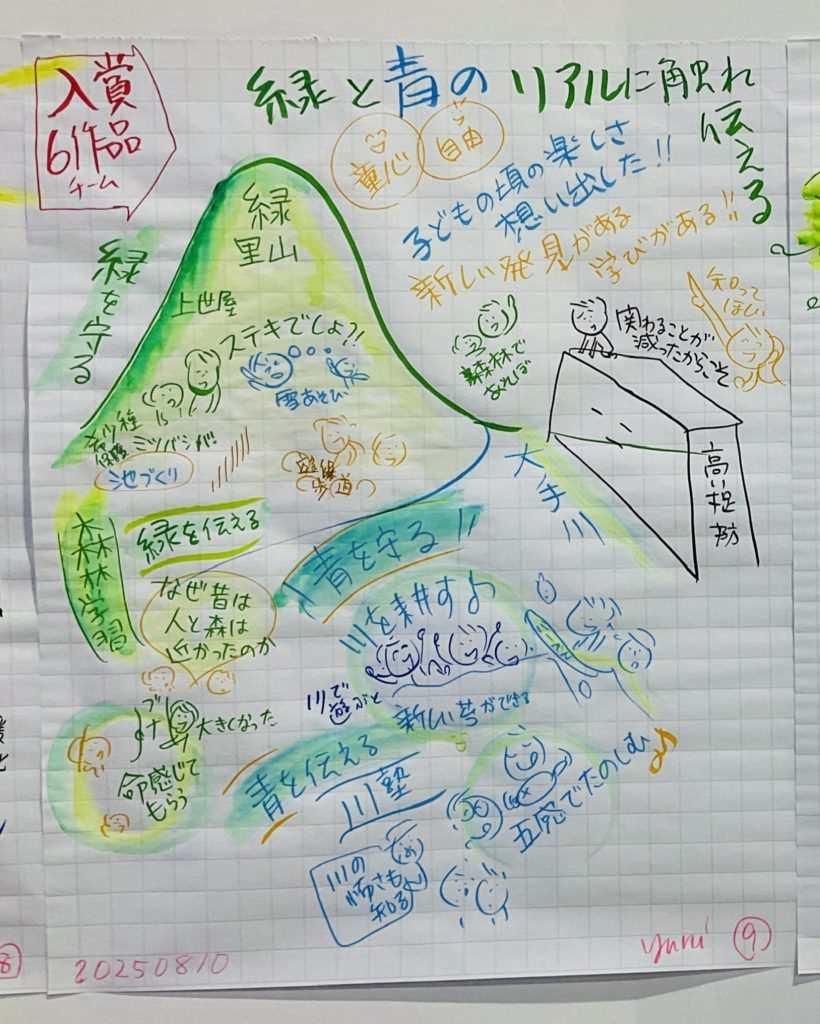 入賞
6作品
チーム
緑と青のリアルに触れ
伝える
童心
自由
子どもの頃の楽しさ
想い出した!!
新しい発見がある
学びがある!!
緑
里山
緑を守る
上世屋
ステキでしょ?!
雪あそび
希少種
保護
ミツバシが!
池づくり
歩道
森林で
あそぼ
関わることが
減ったからこそ
知って
ほしい
高い堤防
大手川
森林学習
緑を伝える
なぜ昔は
人と森は
近かったのか
青を守る!!
川を耕す♪
川で
遊ぶと
新しい芽ができる
ブナ
大きくなった
命感じて
もらう
青を伝える
川塾
五感でたのしむ♪
川の
怖さも
知る
20250810
yuni
9
8